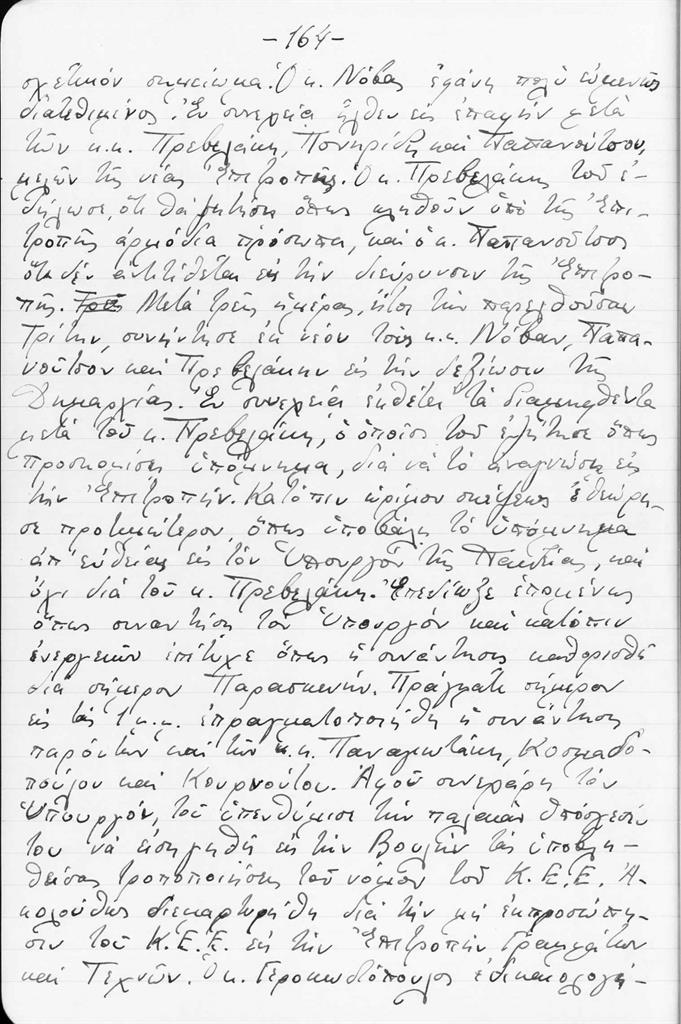 -164-
σχετικόν σημείωμα. Ὁ κ. Νόβας ἐφάνη πολὺ εὐμενῶς
διατεθειμένος. Ἐν συνεχείᾳ ἦλθεν εἰς ἐπαφὴν μετὰ
τῶν κ.κ. Πρεβελάκη, Πονηρίδη καὶ Παπανούτσου,
μελῶν τῆς νέας Ἐπιτροπῆς. Ὁ κ. Πρεβελάκης τοῦ ἐ-
δήλωσε, ὅτι θὰ ζητήσῃ ὅπως κληθοῦν ὑπὸ τῆς Ἐπι-
τροπῆς ἁρμόδια πρόσωπα, καὶ ὁ κ. Παπανοῦτσος
ὅτι δὲν ἀντιτίθεται εἰς τὴν διεύρυνσιν τῆς Ἐπιτρο-
πῆς. Μετὰ τρεῖς ἡμέρας, ἤτοι τὴν παρελθοῦσαν
Τρίτην, συνήντησε ἐκ νέου τοὺς κ.κ. Νόβαν, Παπα-
νοῦτσον καὶ Πρεβελάκην εἰς τὴν δεξίωσιν τῆς
Δημαρχίας. Ἐν συνεχείᾳ ἐκθέτει τὰ διαμειφθέντα
μετὰ τοῦ κ. Πρεβελάκη, ὁ ὁποῖος τοῦ ἐζήτησε ὅπως
προσκομίσῃ ὑπόμνημα, διὰ νὰ τὸ ἀναγνώσῃ εἰς
τὴν Ἐπιτροπήν. Κατόπιν ὡρίμου σκέψεως ἐθεώρη-
σε προτιμώτερον, ὅπως ὑποβάλῃ τὸ ὑπόμνημα
ἀπ' εὐθείας εἰς τὸν Ὑπουργὸν τῆς Παιδείας, καὶ
ὄχι διὰ τοῦ κ. Πρεβελάκη. Ἐπεδίωξε ἑπομένως
ὅπως συναντήσῃ τὸν Ὑπουργὸν καὶ κατόπιν
ἐνεργειῶν ἐπέτυχε ὅπως ἡ συνάντησις καθορισθῇ
διὰ σήμερον Παρασκευήν. Πράγματι σήμερον
εἰς τὰς 1 μ.μ. ἐπραγματοποιήθη ἡ συνάντησις
παρόντων καὶ τῶν κ.κ. Παναγιωτάκη, Κοσμαδο-
πούλου καὶ Κουρνούτου. Ἀφοῦ συνεχάρη τὸν
Ὑπουργόν, τοῦ ὑπενθύμισε τὴν παλαιὰν ὑπόσχεσίν
του νὰ εἰσηγηθῇ εἰς τὴν Βουλὴν τὰς ὑποβλη-
θείσας τροποποιήσεις τοῦ νόμου τοῦ Κ.Ε.Ε. Ἀ-
κολούθως διεμαρτυρήθη διὰ τὴν μὴ ἐκπροσώπη-
σιν τοῦ Κ.Ε.Ε. εἰς τὴν Ἐπιτροπὴν Γραμμάτων
καὶ Τεχνῶν. Ὁ κ. Γεροκωστόπουλος ἐδικαιολογή-